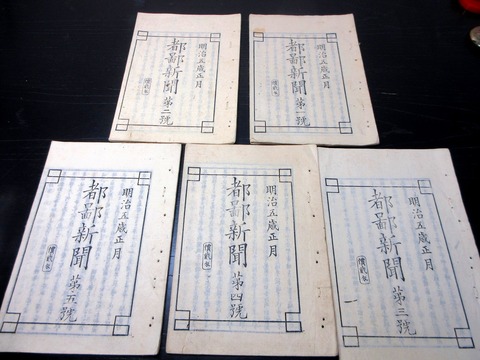 明治五歳正月
都鄙新聞 第一號
明治五歳正月
都鄙新聞 第二號
明治五歳正月
都鄙新聞 第三號
明治五歳正月
都鄙新聞 第四號
明治五歳正月
都鄙新聞 第五號